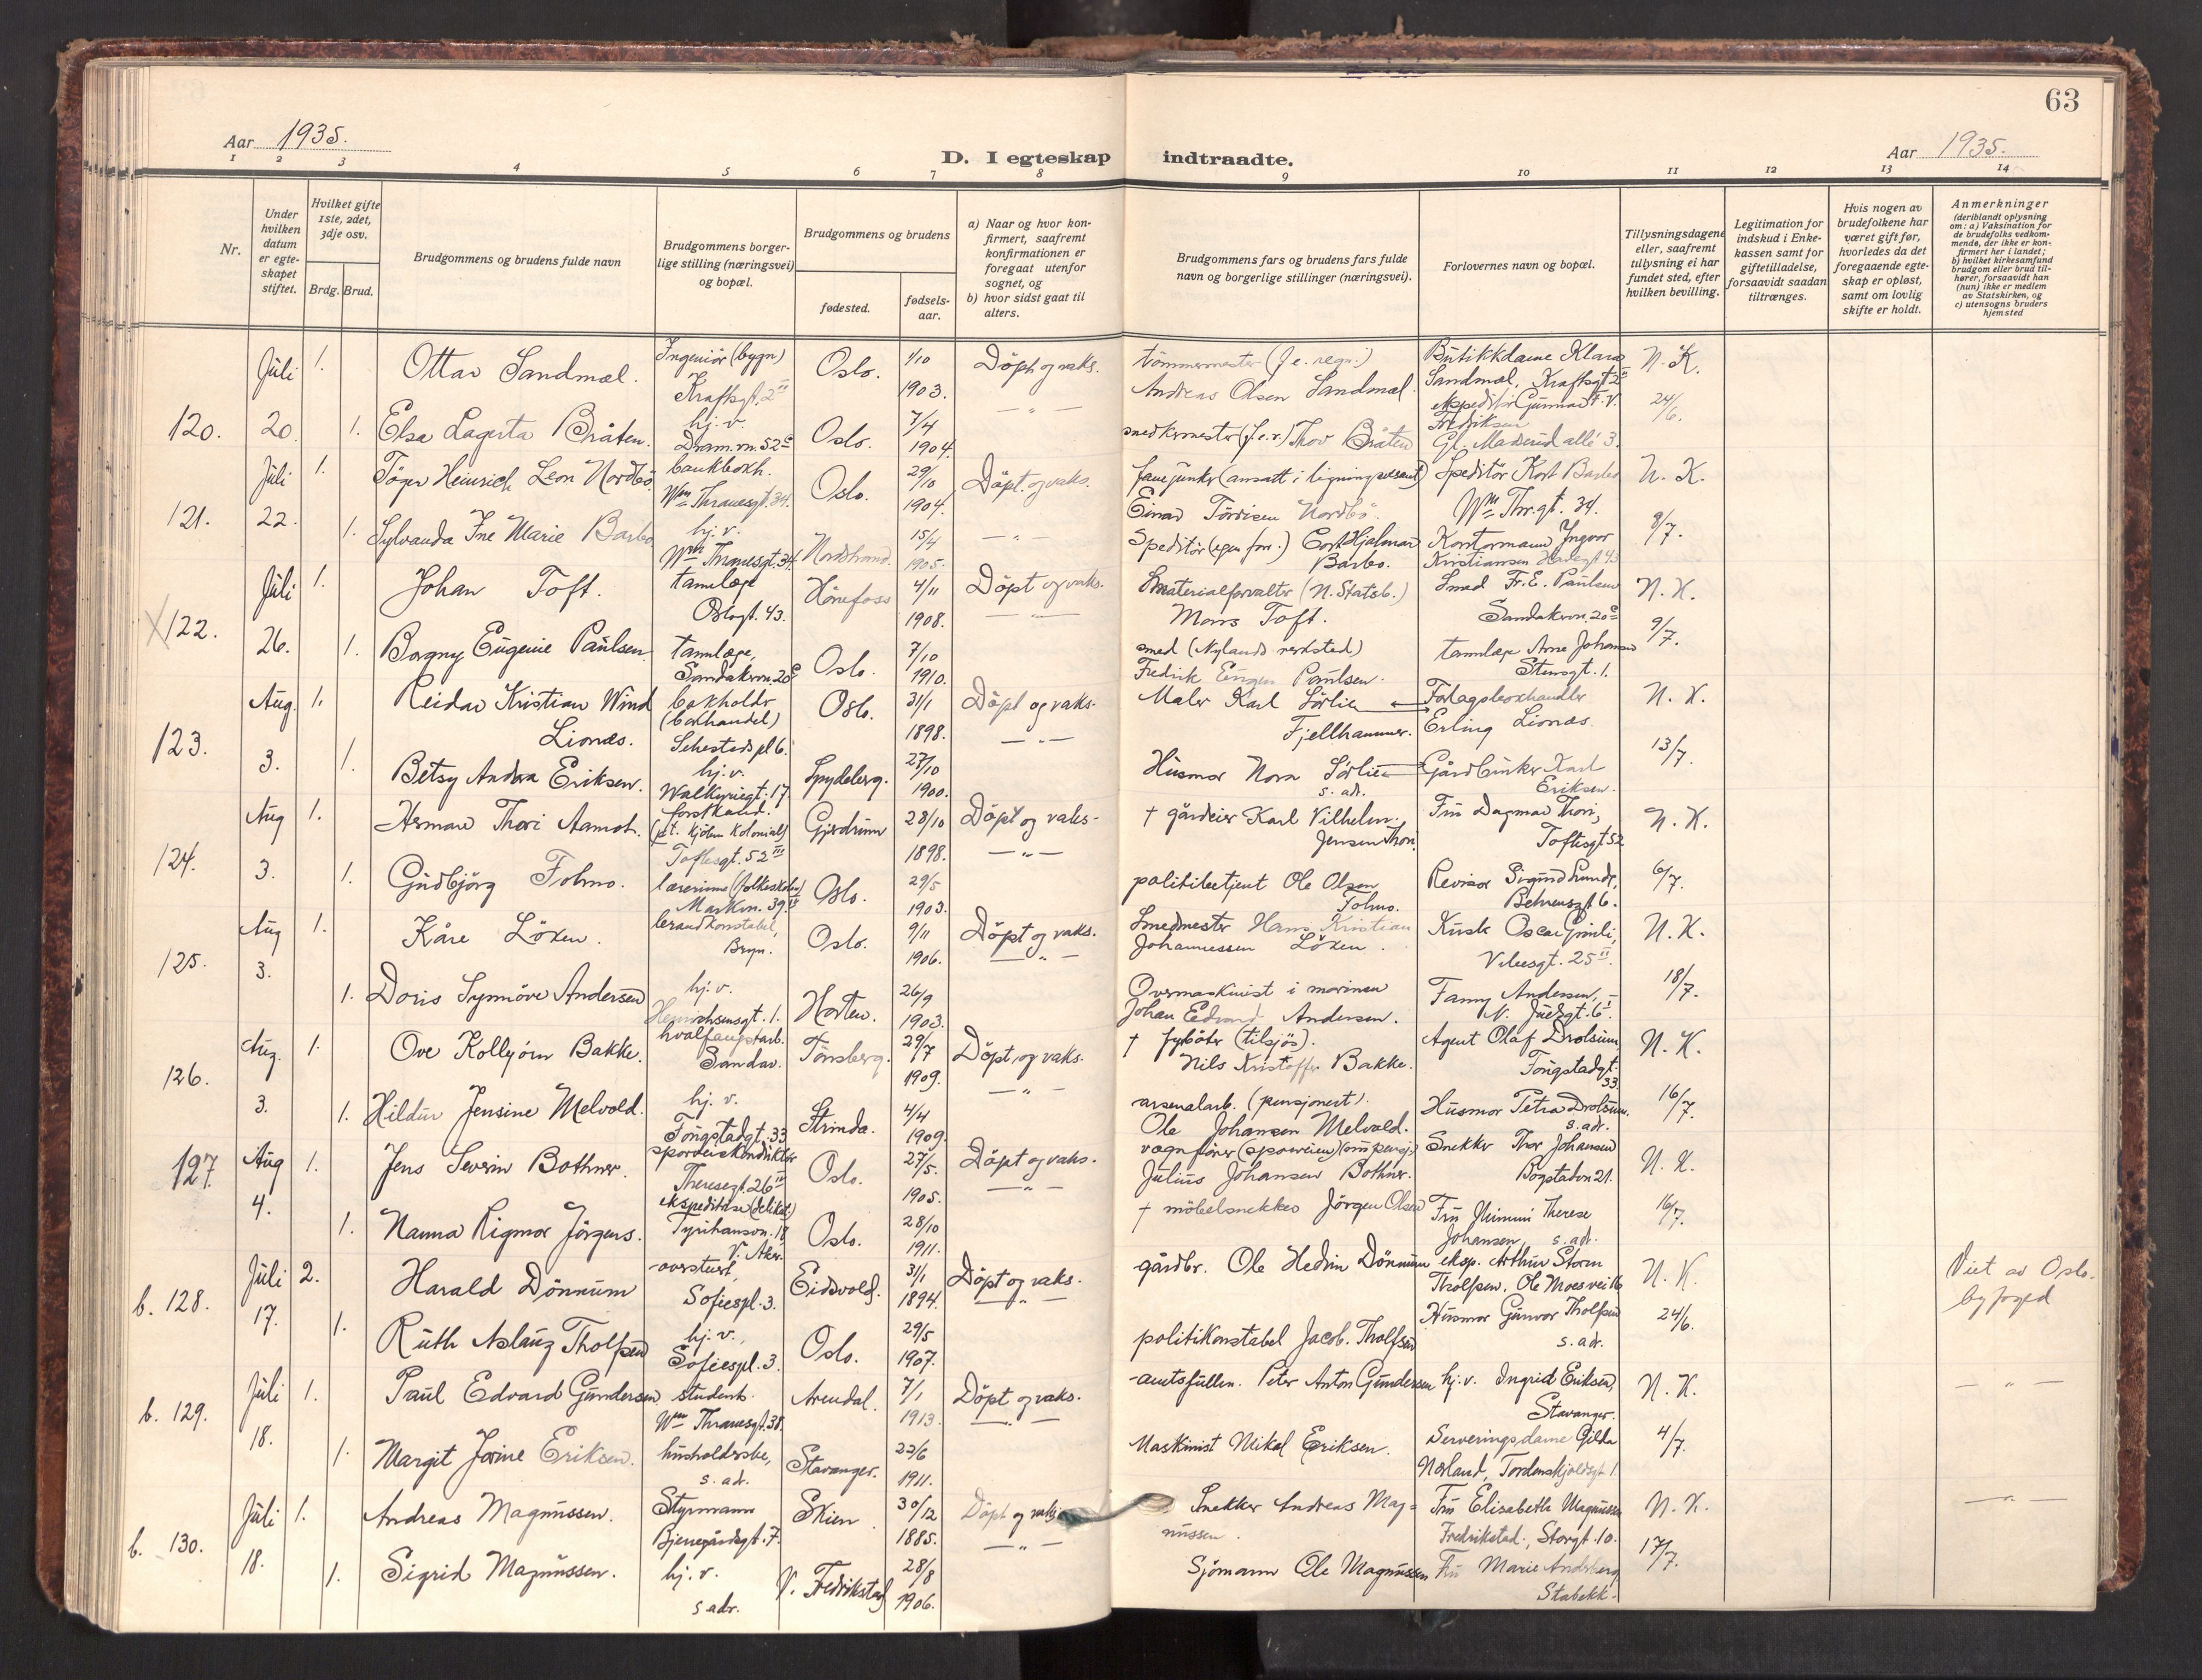 63
Aar 1935.
D. I egteskap indtraadte.
Aar 1935.
1 2 3 4 5 6 7 8 9 10 11 12 13 14
Nr.
Under hvilken datum er egteskapet stiftet.
Hvilket gifte 1ste, 2det, 3dje osv.
Brdg. Brud.
Brudgommens og brudens fulde navn
Brudgommens borgerlige stilling (næringsvei) og bopæl.
Brudgommens og brudens
fødested.
fødselsaar.
a) Naar og hvor konfirmert, saafremt konfirmationen er foregaat utenfor sognet, og
b) hvor sidst gaat til alters.
Brudgommens fars og brudens fars fulde navn og borgerlige stillinger (næringsvei).
Forlovernes navn og bopæl.
Tillysningsdagene eller, saafremt tillysning ei har fundet sted, efter hvilken bevilling.
Legitimation for indskud i Enkekassen samt for giftetilladelse, forsaavidt saadan tiltrænges.
Hvis nogen av brudefolkene har været gift før, hvorledes da det foregaaende egteskap er opløst, samt om lovlig skifte er holdt.
Anmerkninger
(deriblandt oplysning om: a) Vaksination for de brudefolks vedkommende, der ikke er konfirmert her i landet; b) hvilket kirkesamfund brudgom eller brud tilhører, forsaavidt han (hun) ikke er medlem av Statskirken, og c) utensogns bruders hjemsted
120. Juli 20. 1. Ottar Sandmæl. Ingeniör (bygn) Kraftsgt. 2 II Oslo. 1/10 1903. Döpt og vaks. tömmermester Andreas Olsen Sandmæl. Butikkdame Klara Sandmæl, Kraftsgt 2 II N. K.
1. Elsa Lagerta Bråten. hj. v. Dram.vn. 52 c Oslo. 7/4 1904. — " — snedkermester Thor Bråten ekspeditör Gunnar F. V. Fredriksen Gl. Madserud allé 3. 24/6.
121. Juli 22. 1. Heinrich Leon Nordbö. bankbokh. Wm Thranesgt. 34. Oslo. 29/10 1904. Döpt. og vaks. fanejunker Einar Nordbö. Speditör Kort Barbo Wm Thr.gt. 34. N. K.
1. Sylvanda Ine Marie Barbo hj. v. Wm Thranesgt. 34. Nordstrand. 15/4 1905. — " — Speditör Cort Hjalmar Barbo. Kontormann Ingvor Kristiansen 8/7.
122. Juli 26. 1. Johan Toft. tannlæge Oslogt. 43. Hönefoss 4/11 1908. Döpt og vaks. materialforvalter (N. Statsb.) Mons Toft. Smed Fr. E. Paulsen Sandakervn. 20 c N. K.
1. Borgny Eugenie Paulsen tannlæge, Sandakervn. 20 c Oslo. 7/10 1910. — " — smed (Nylands verksted) Fredrik Eugen Paulsen. tannlæge Arne Johansen Stensgt. 1. 9/7.
123. Aug. 3. 1. Reidar Kristian Wind Lionæs. bokholder (bokhandel) Sehesteds pl 6. Oslo. 31/1 1898. Döpt og vaks. Maler Karl Sörlie Fjellhammer. Forlagsbokhandler Erling Lionæs. N. K.
1. Betsy Andrea Eriksen. hj. v. Walkyriegt. 17. Spydeberg. 27/10 1900. — " — Husmor Nora Sörlie s. adr. Gårdbruker Karl Eriksen. 13/7.
124. Aug 3. 1. Herman Thori Aamot. forstkand. Toftesgt. 52 III Gjerdrum 28/10 1898. Döpt og vaks. † gårdeier Karl Vilhelm Jensen Thori. Fru Dagmar Thori, Toftesgt 52 N. K.
1. Gudbjörg Tolmo. lærerinne (folkeskolen) Oslo. 29/5 1903. — " — politibetjent Ole Olsen Tolmo. Revisor Sigurd Lunde, Behrensgt 6. 6/7.
125. Aug 3. 1. Kåre Löken. brandkonstabel, Bryn. Oslo. 9/11 1906. Döpt og vaks. Smedmester Hans Kristian Johannessen Löken. Kusk Oscar Gimli, Vibesgt. 25 II. N. K.
1. Doris Synnöve Andersen hj. v. Henrichsensgt. 1. Horten. 26/9 1903. — " — Overmaskinist i marinen Johan Edvard Andersen. Fanny Andersen, N. Juelsgt. 6 I. 18/7.
126. Aug. 3. 1. Ove Kolbjörn Bakke. hvalfangstarb. Sandar. Tönsberg. 29/7 1909. Döpt og vaks. † fyrböter (tilsjös). Nils Kristoffer Bakke. Agent Olaf Drolsum, Fougstadgt. 33 N. K.
1. Hildur Jensine Melvold. hj. v. Fougstadgt. 33 Strinda. 4/4 1909. — " — arsenalarb. (pensjonert). Ole Johansen Melvold. Husmor Petra Drolsum. s. adr. 16/7.
127. Aug 4. 1. Jens Severin Bothner. sporveiskonduktör Theresesgt. 26 III Oslo. 27/5. 1905. Döpt og vaks. vognförer (sporveien) Julius Johansen Bothner. Snekker Thor Johansen Bogstadvn 21. N. K.
1. Nanna Rigmor Jörgens. ekspeditrise (delikat.) Tyrihansvn. 18 V. Aker Oslo. 28/10 1911. — " — † möbelsnekker Jörgen Olsen Fru Mimmi Therese Johansen, s. adr. 16/7.
b. 128. Juli 17. 2. Harald Dönnum overstuert, Sofiespl. 3. Eidsvold. 31/1 1894. Döpt og vaks. gårdbr. Ole Hedin Dönnum eksp. Arthur Storm Tholfsen, Ole Moes vei 16 N. K. Viet av Oslo byfoged
1. Ruth Aslaug Tholfsen hj. v., Sofiespl. 3. Oslo. 29/5 1907. — " — politikonstabel Jacob Tholfsen Husmor Gunvor Tholfsen s. adr. 24/6.
b. 129. Juli 18. 1. Paul Edvard Gundersen student. Wm Thranesgt. 38. Arendal. 7/1 1913. Döpt og vaks. amtsfullm. Peter Anton Gundersen hj. v. Ingrid Eriksen, Stavanger. N. K. — " —
1. Margit Jorine Eriksen. husholderske, s. adr. Stavanger. 22/6 1911. — " — Maskinist Mikal Eriksen. Serveringsdame Gilda Nørland, Tordenskjoldsgt 1. 4/7.
b. 130. Juli 18. 1. Andreas Magnussen. Styrmann Bjerregårdsgt. 7. Skien. 30/12 1885. Döpt og vaks. Snekker Andreas Magnussen. Fru Elisabeth Magnussen Fredrikstad, Storgt. 10. N. K. — " —
1. Sigrid Magnussen. hj. v. s. adr. V. Fredrikstad 28/8 1906. — " — Sjömann Ole Magnussen Fru Marie Stabekk. 17/7.